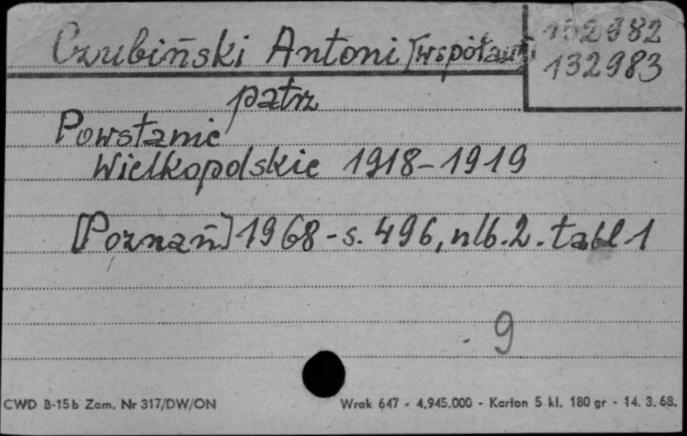 Czubiński Antoni [współaut]
132982
132983
patrz
Powstanie
Wielkopolskie 1918-1919
[Poznań] 1968 - s. 496, nlb. 2. tabl 1
9
CWD B-15b Zam. Nr 317/DW/ON
Wrak 647 - 4.945.000 - Karton 5 kl. 180 gr - 14. 3. 68.